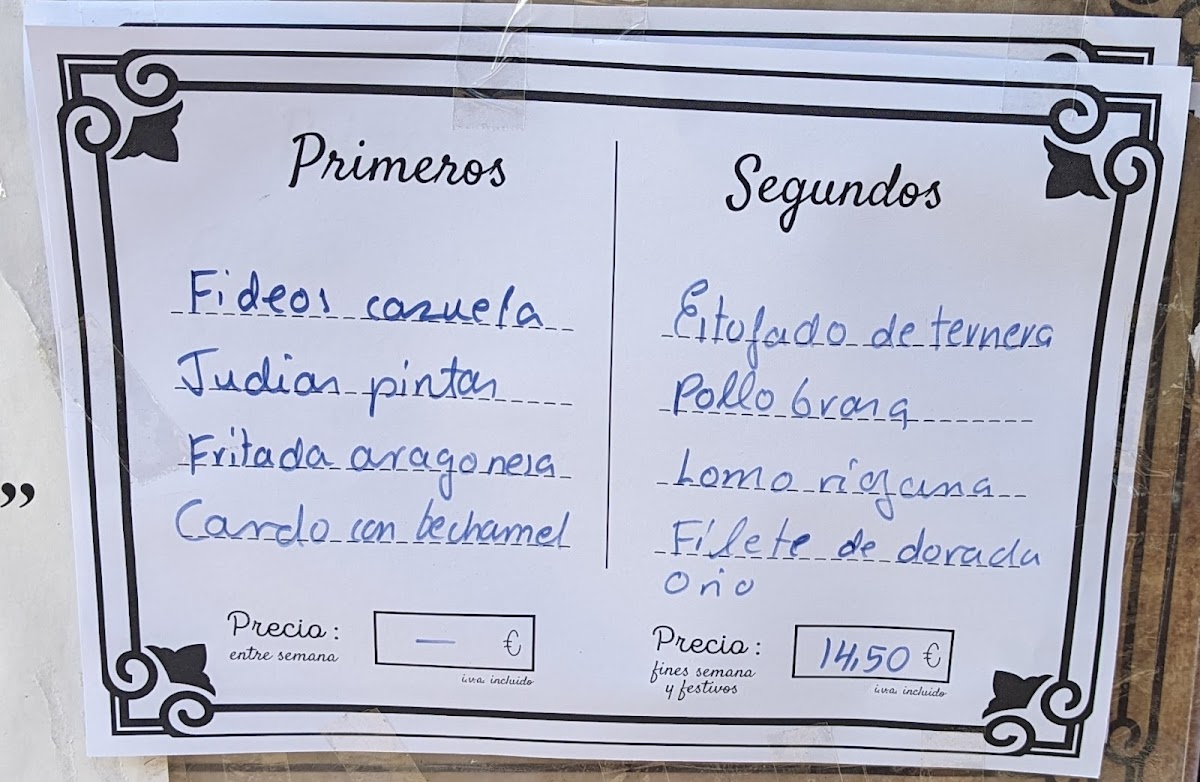 ”
Primeros
Fideos cazuela
Judias pintas
Fritada aragonesa
Cardo con bechamel
Precio :
entre semana
— €
i.v.a. incluido
Segundos
Estofado de ternera
Pollo brasa
Lomo riojana
Filete de dorada
Orio
Precio :
fines semana
y festivos
14,50 €
i.v.a. incluido